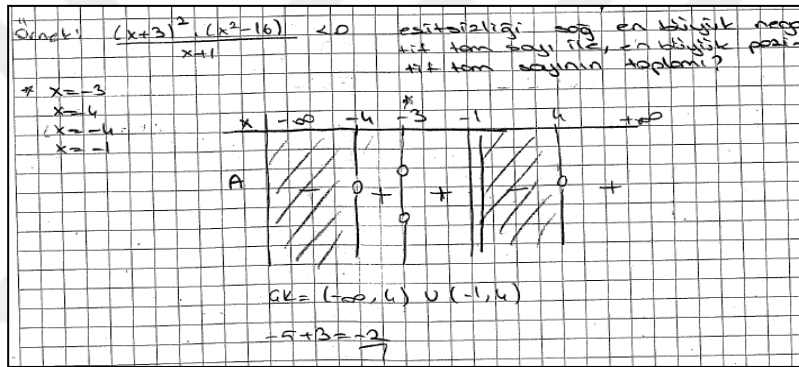 Örnek: (x+3)². (x²-16) / x+1 <0 eşitsizliği sağ en büyük nega
tif tam sayı ile, en büyük pozi-
tif tam sayının toplamı?
* x=-3
x=4
x=-4
x=-1
x -∞ -4 *-3 -1 4 +∞
A - + + - +
ÇK= (-∞, 4) ∪ (-1, 4)
-5+3=-2